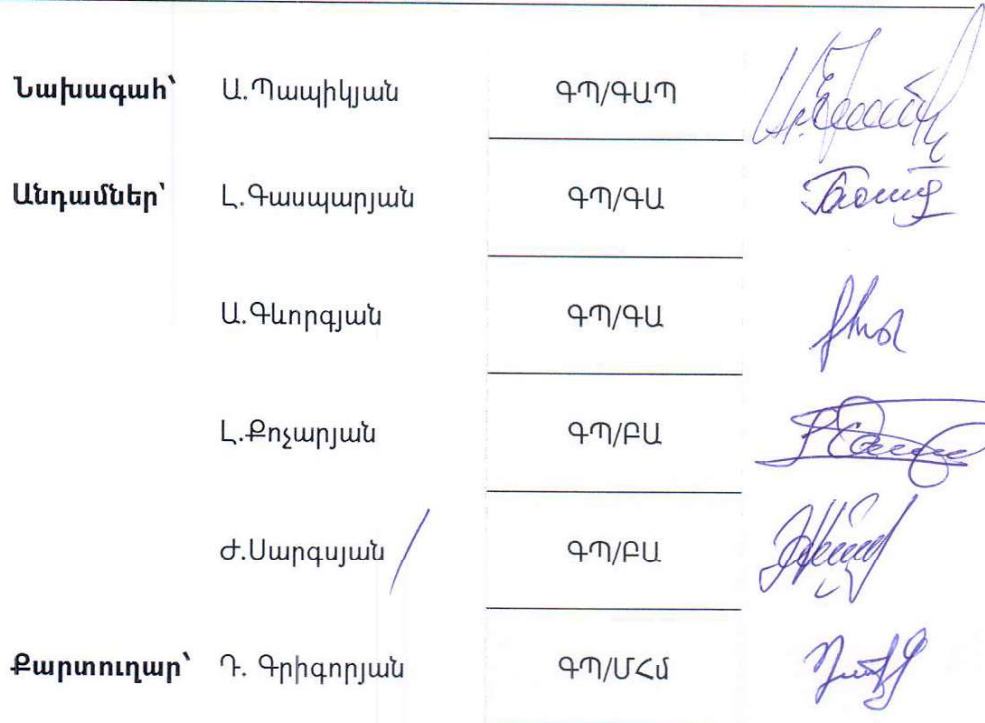 Նախագահ՝ Ա.Պապիկյան ԳՊ/ԳԱՊ
Անդամներ՝ Լ.Գասպարյան ԳՊ/ԳԱ
Ա.Գևորգյան ԳՊ/ԳԱ
Լ.Քոչարյան ԳՊ/ԲԱ
Ժ.Սարգսյան ԳՊ/ԲԱ
Քարտուղար՝ Դ. Գրիգորյան ԳՊ/ՄՀմ